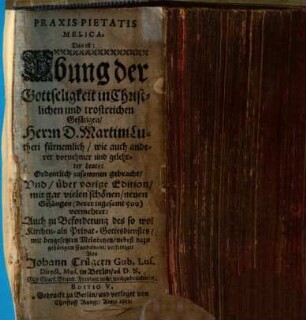 PRAXIS PIETATIS
MELICA.
Das ist:
Ubung der
Gottseligkeit in Christ-
lichen und trostreichen
Gesängen/
Herrn D. Martini Lu-
theri fürnemlich / wie auch ande-
rer vornehmer und gelehr-
ter Leute:
Ordentlich zusammen gebracht/
Vnd / über vorige Edition/
mit gar vielen schönen / neuen
Gesängen (derer ingesamt 500)
vermehret:
Auch zu Beforderung des so wol
Kirchen- als Privat-Gottesdienstes/
mit beygesetzten Melodeyen / nebest dazu
gehörigen Fundament / verfertiget
Von
Johann Crügern Gub. Lus.
Direct. Mus. in Berlin / ad D. N.
EDITIO V.
Gedruckt zu Berlin / und verleget von
Christoff Runge / Anno 1653.